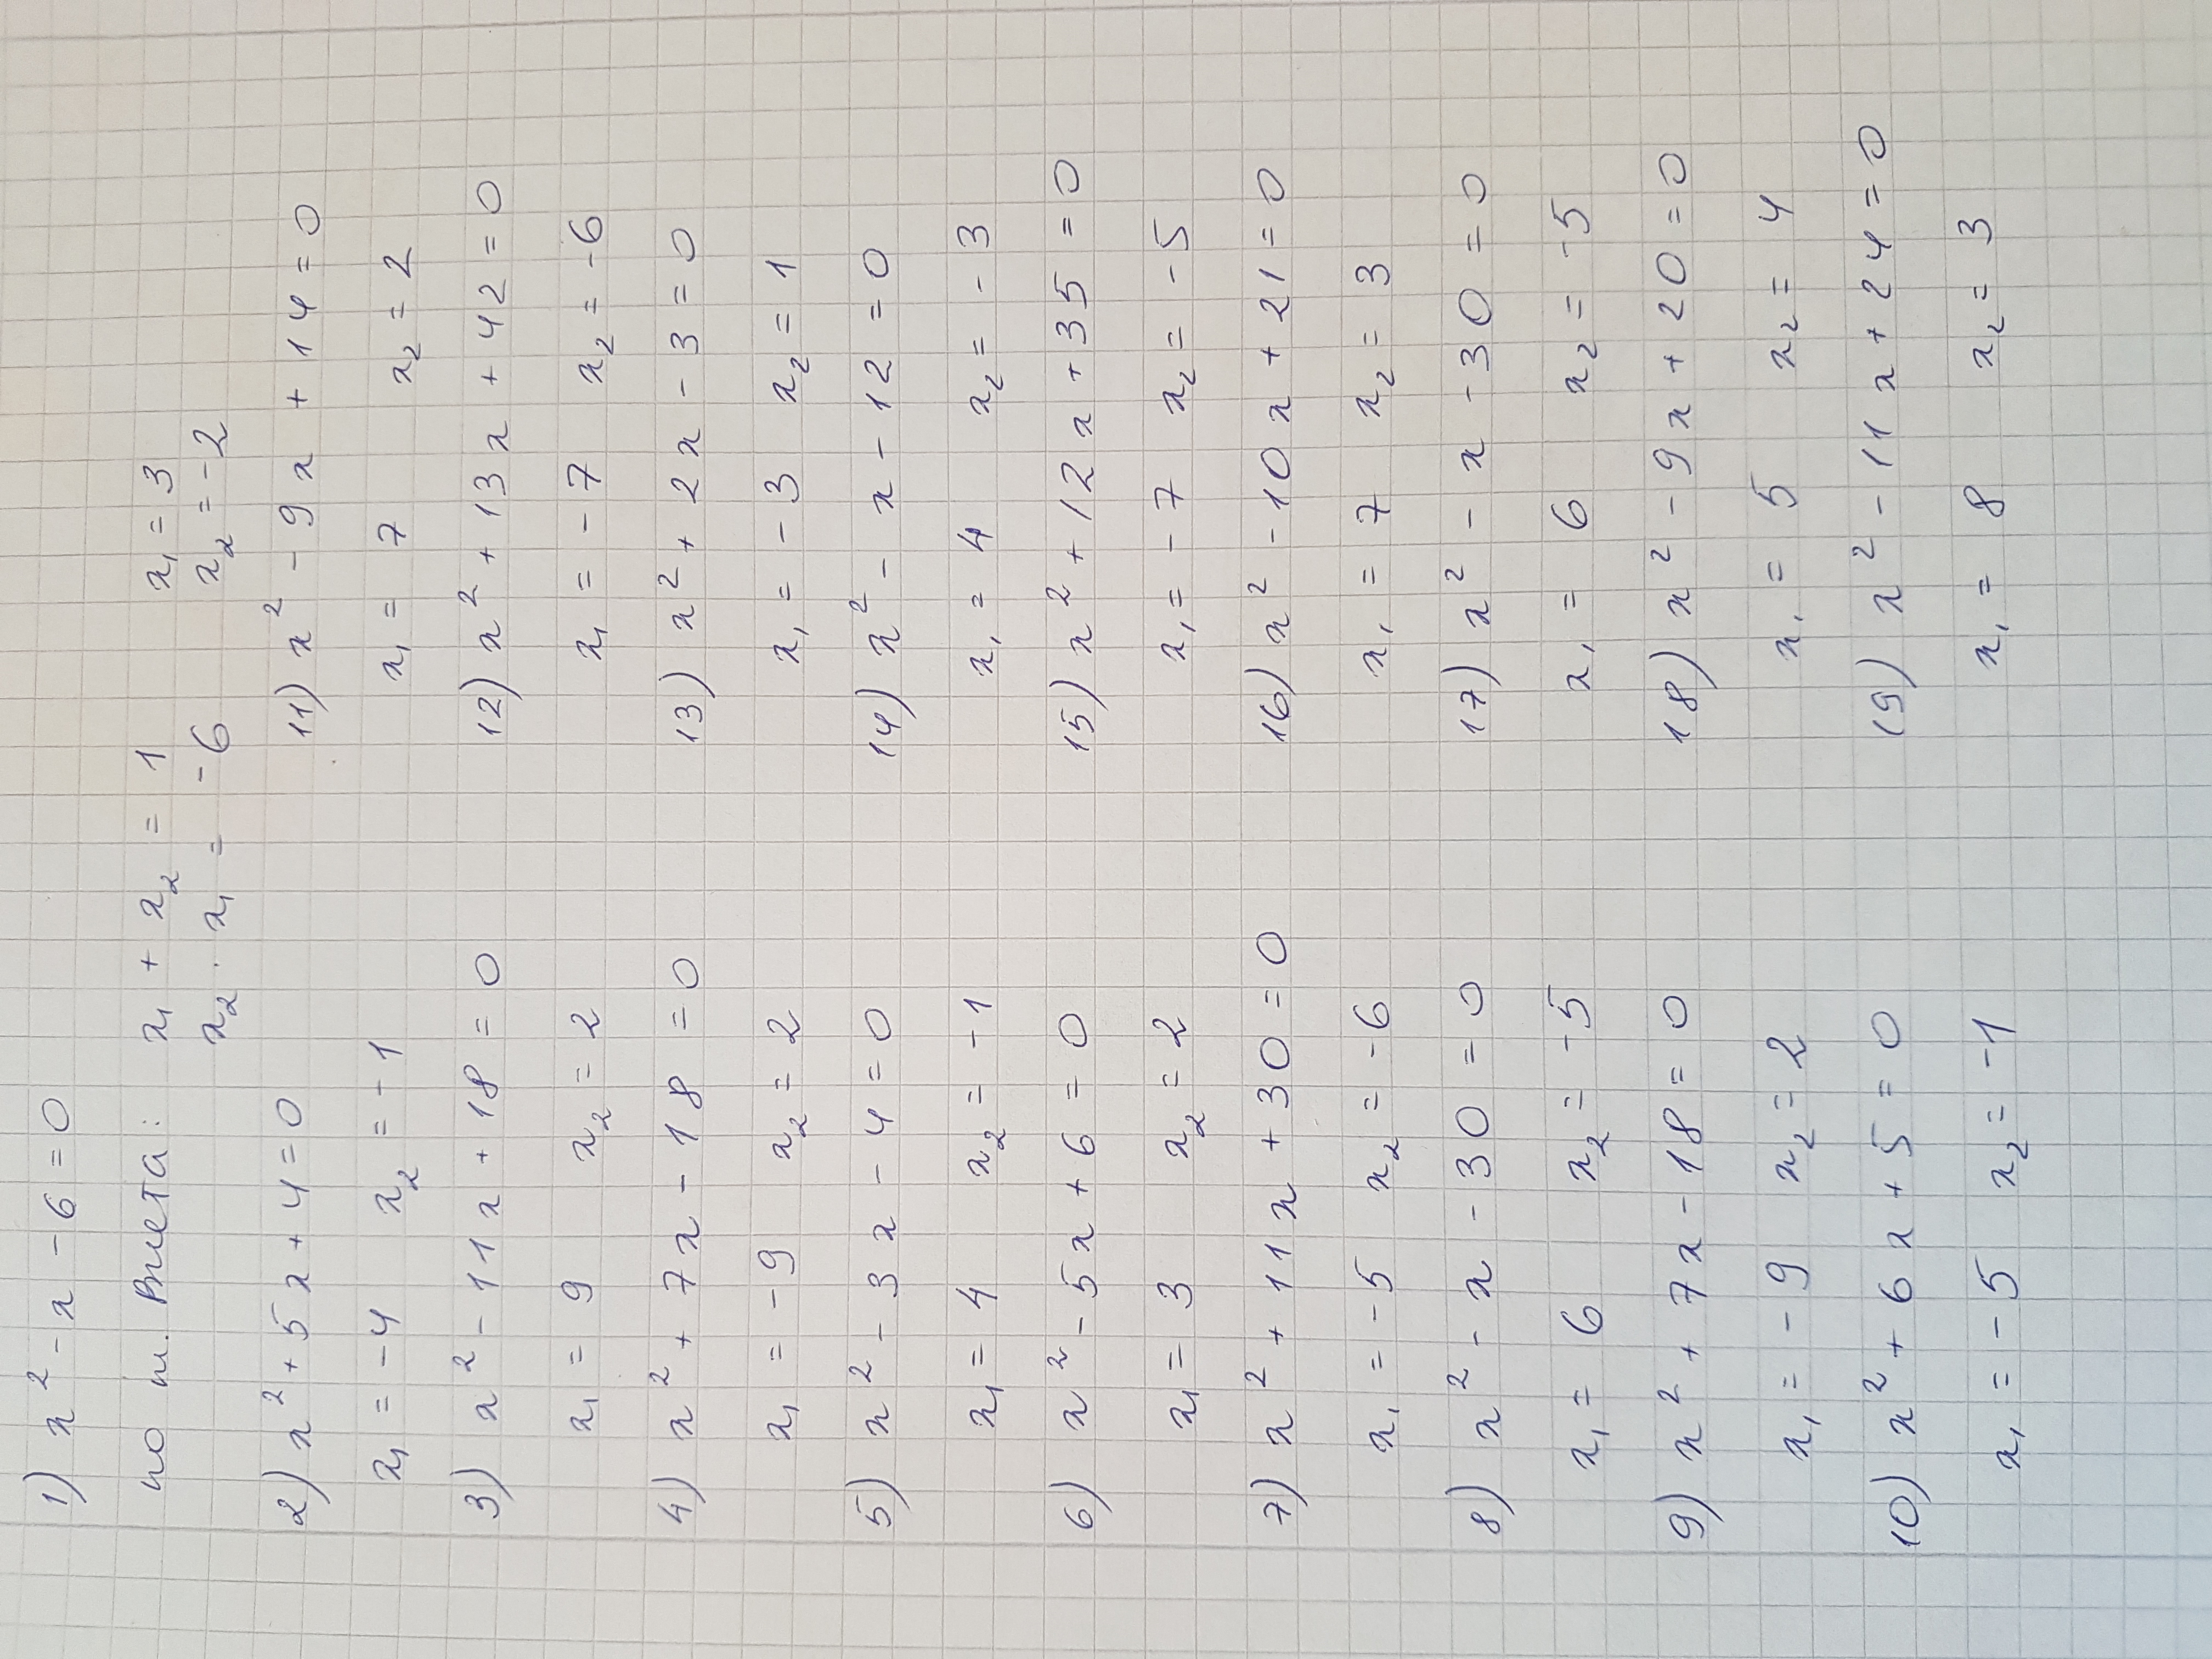 1) x² - x - 6 = 0
по т. Виета: x₁ + x₂ = 1 x₁ = 3
x₂ · x₁ = -6 x₂ = -2
2) x² + 5x + 4 = 0
x₁ = -4 x₂ = -1
3) x² - 11x + 18 = 0
x₁ = 9 x₂ = 2
4) x² + 7x - 18 = 0
x₁ = -9 x₂ = 2
5) x² - 3x - 4 = 0
x₁ = 4 x₂ = -1
6) x² - 5x + 6 = 0
x₁ = 3 x₂ = 2
7) x² + 11x + 30 = 0
x₁ = -5 x₂ = -6
8) x² - x - 30 = 0
x₁ = 6 x₂ = -5
9) x² + 7x - 18 = 0
x₁ = -9 x₂ = 2
10) x² + 6x + 5 = 0
x₁ = -5 x₂ = -1
11) x² - 9x + 14 = 0
x₁ = 7 x₂ = 2
12) x² + 13x + 42 = 0
x₁ = -7 x₂ = -6
13) x² + 2x - 3 = 0
x₁ = -3 x₂ = 1
14) x² - x - 12 = 0
x₁ = 4 x₂ = -3
15) x² + 12x + 35 = 0
x₁ = -7 x₂ = -5
16) x² - 10x + 21 = 0
x₁ = 7 x₂ = 3
17) x² - x - 30 = 0
x₁ = 6 x₂ = -5
18) x² - 9x + 20 = 0
x₁ = 5 x₂ = 4
19) x² - 11x + 24 = 0
x₁ = 8 x₂ = 3